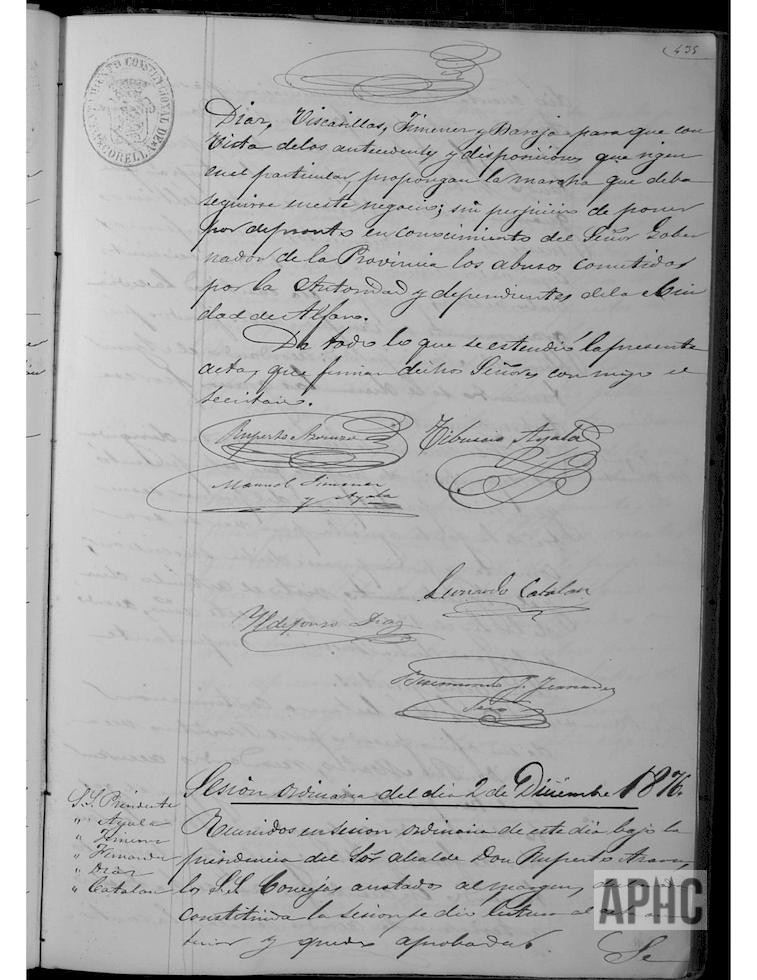 435
AYUNTAMIENTO CONSTITUCIONAL DE CORELLA
Diaz, Viscasillas, Jimenez y Baroja para que con
vista delos antecedentes y disposiciones que rigen
en el particular, propongan la marcha que deba
seguirse en este negocio; sin perjuicio de poner
por depronto en conocimiento del Señor Gober
nador de la Provincia los abusos cometidos
por la Autoridad y dependientes dela Ciu
dad de Alfaro.
De todo lo que se estendió la presente
acta, que firman dichos Señores con migo el
Secretario.
Ruperto
Tiburcio Ayala
Manuel Jimenez
y Ayala
Leonardo Catalan
Yldefonso Diaz
Fernandez
Srio
Sesion ordinaria del dia 2 de Diciembre 1876.
S.S. Presidente
" Ayala
" Jimenez
" Fernandez
" Diaz
" Catalan
Reunidos en sesion ordinaria de este dia bajo la
presidencia del Sor Alcalde Don Ruperto
los S.S. Concejales anotados al margen,
constituida la sesion se dio lectura al
terior y quedó aprobada.
Se
APHC